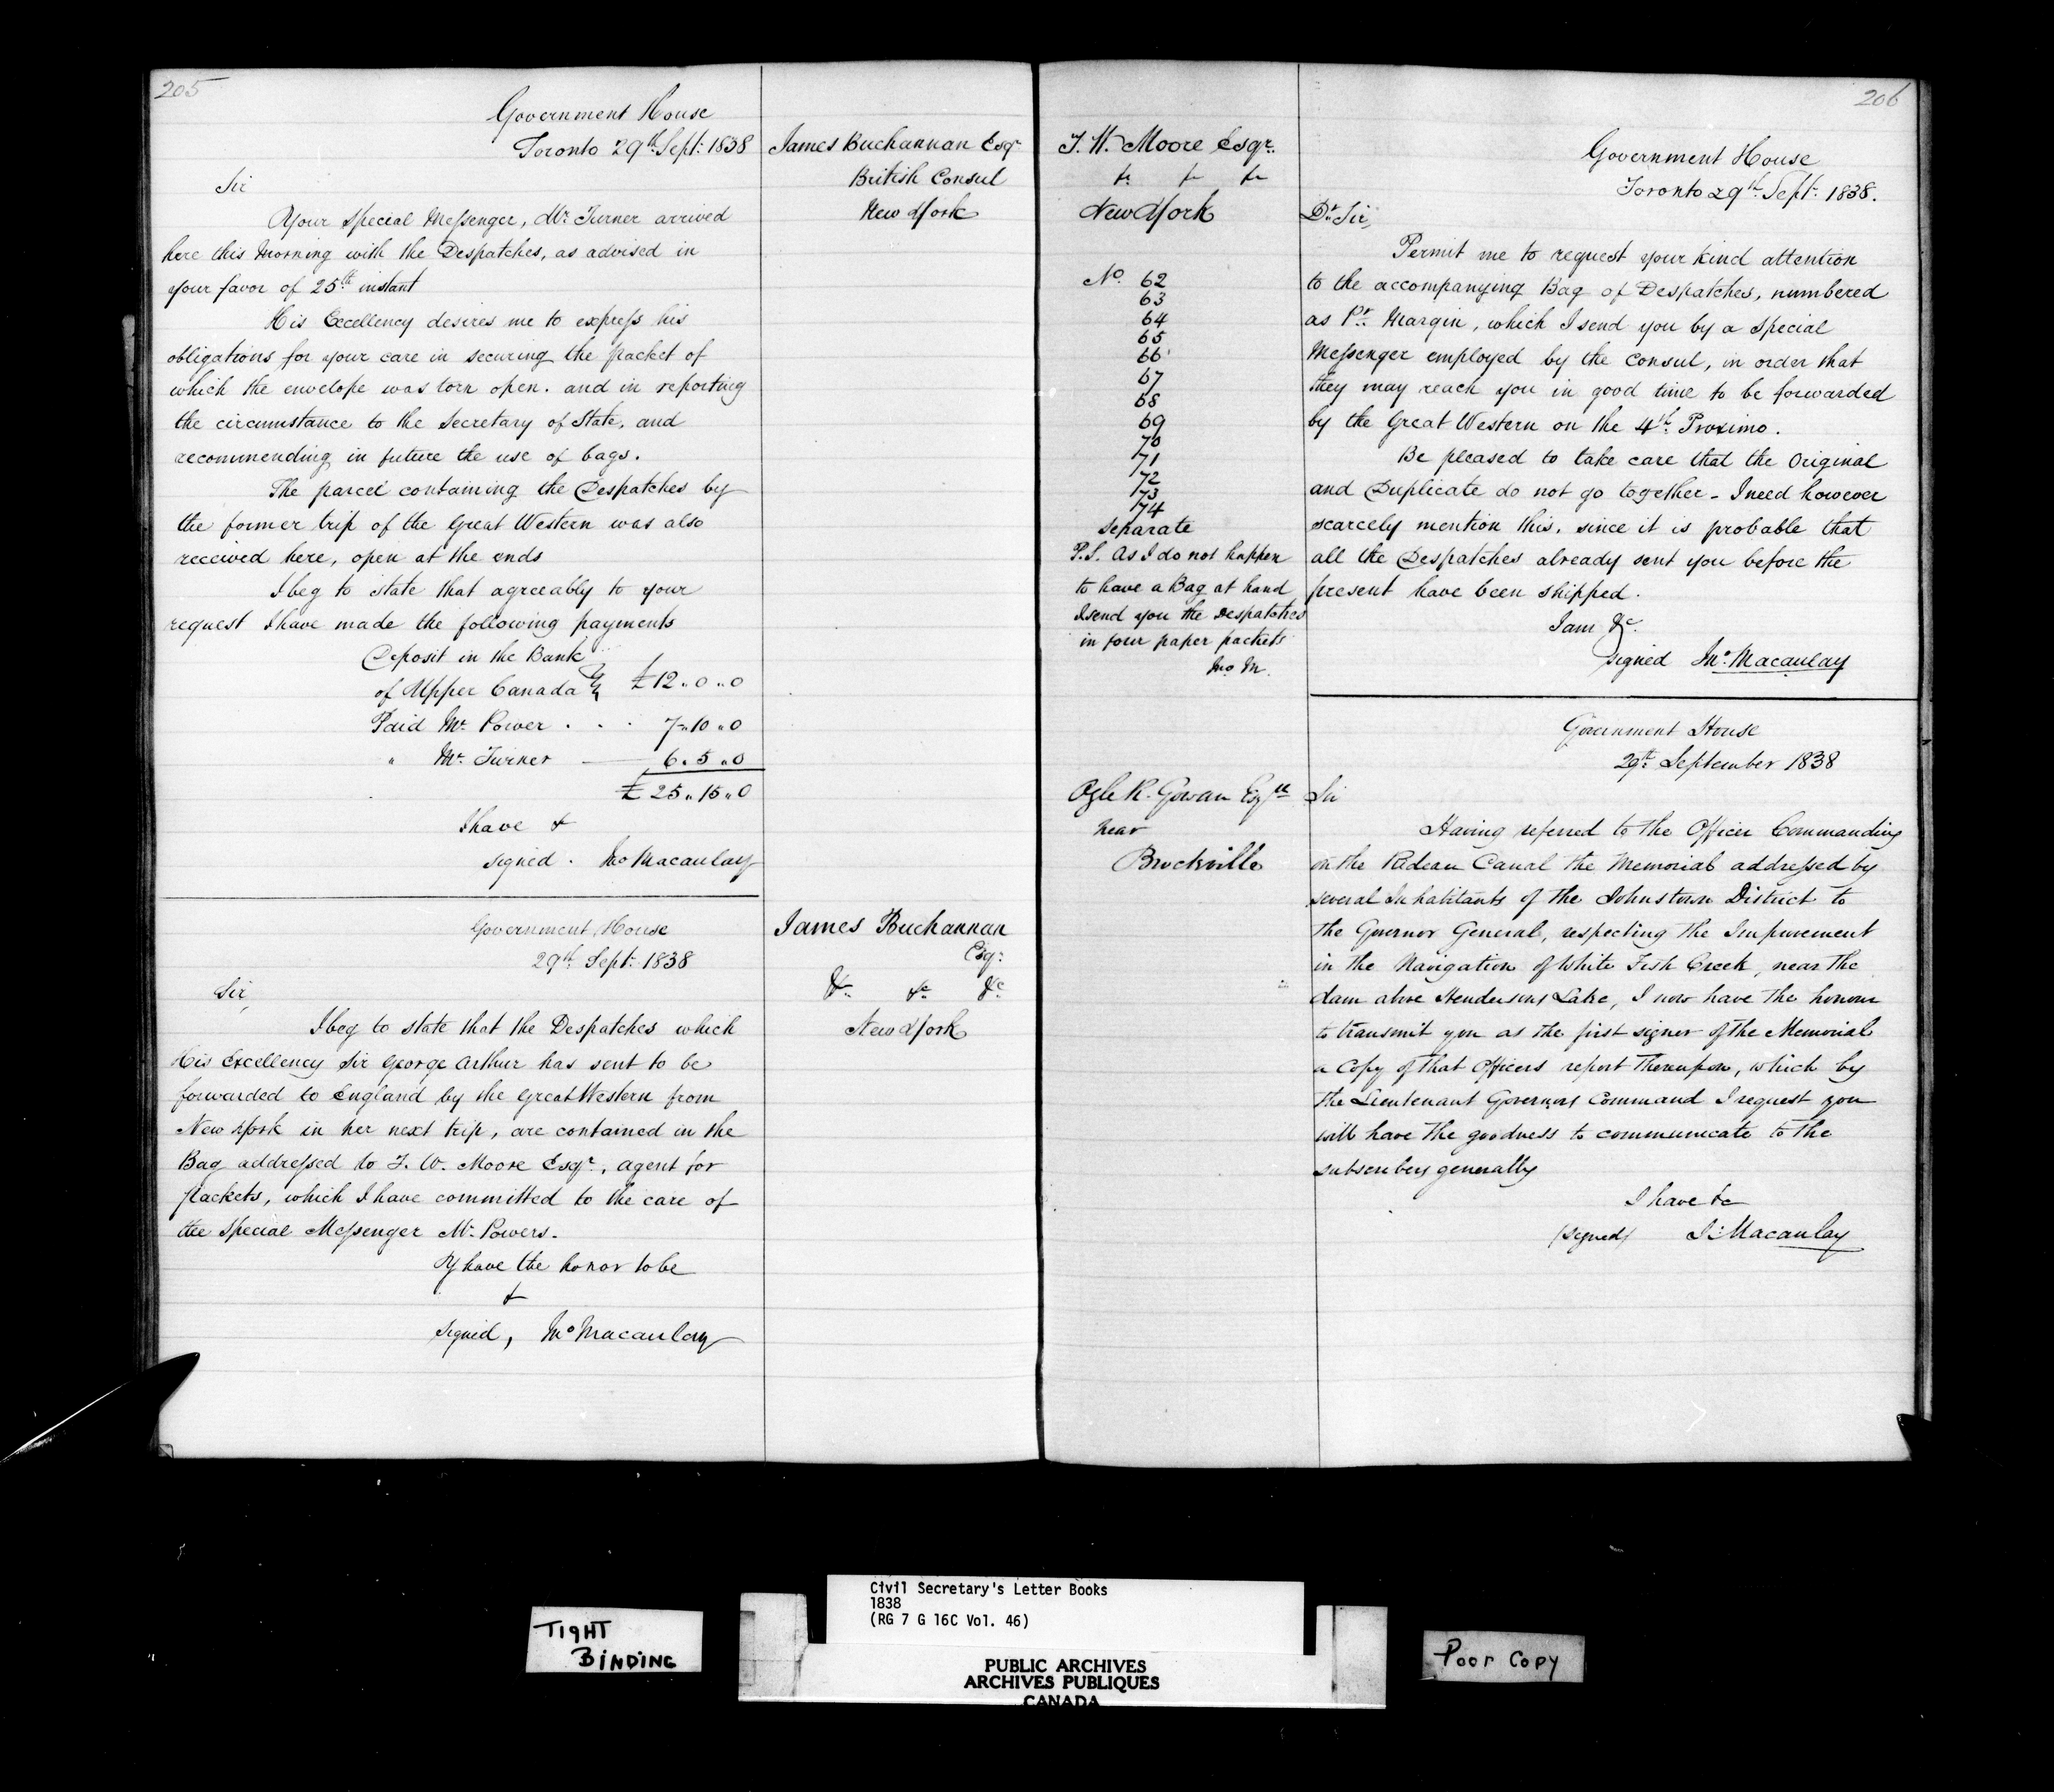 205
Government House
Toronto 29th Sept: 1838
James Buchannan Esqr
British Consul
New York
Sir
Your special Messenger, Mr. Turner arrived
here this Morning with the Despatches, as advised in
your favor of 25th instant
His Excellency desires me to express his
obligations for your care in securing the packet of
which the envelope was torn open. and in reporting
the circumstance to the Secretary of State, and
recommending in future the use of bags.
The parcel containing the Despatches by
the former trip of the Great Western was also
received here, open at the ends
I beg to state that agreeably to your
request I have made the following payments
Deposit in the Bank
of Upper Canada } £12 „ 0 „ 0
Paid Mr. Power . . . 7 „ 10 „ 0
" Mr. Turner — 6 „ 5 „ 0
£ 25 „ 15 „ 0
I have &
signed . Jno Macaulay
Government House
29th Sept: 1838
James Buchannan
Esqr:
&c. &c. &c.
New York
Sir,
I beg to state that the Despatches which
His Excellency Sir George Arthur has sent to be
forwarded to England by the Great Western from
New York in her next trip, are contained in the
Bag addressed to J. W. Moore Esqr., agent for
packets, which I have committed to the care of
the special Messenger Mr. Powers.
I have the honor to be
&
signed, Jno Macaulay
206
J. W. Moore Esqr.
&c &c &c
New York
No. 62
63
64
65
66
67
68
69
70
71
72
73
74
separate
P.S. As I do not happen
to have a Bag at hand
I send you the Despatches
in four paper packets
Jno M.
Government House
Toronto 29th Sept: 1838.
Dr. Sir,
Permit me to request your kind attention
to the accompanying Bag of Despatches, numbered
as Pr. Margin, which I send you by a special
Messenger employed by the Consul, in order that
they may reach you in good time to be forwarded
by the Great Western on the 4th. Proximo.
Be pleased to take care that the Original
and Duplicate do not go together - I need however
scarcely mention this, since it is probable that
all the Despatches already sent you before the
present have been shipped.
I am &c.
signed Jno. Macaulay
Government House
29th. September 1838
Ogle R. Gowan Esqre
near
Brockville
Sir
Having referred to the Officer Commanding
on the Rideau Canal the Memorial addressed by
several Inhabitants of the Johnstown District to
the Governor General, respecting the Improvement
in the Navigation of White Fish Creek, near the
dam above Hendersons Lake, I now have the honour
to transmit you as the first signer of the Memorial
a Copy of that Officers report thereupon, which by
the Lieutenant Governors Command I request you
will have the goodness to communicate to the
subscribers generally
I have &c
(signed) J. Macaulay
TIGHT
BINDING
Civil Secretary's Letter Books
1838
(RG 7 G 16C Vol. 46)
PUBLIC ARCHIVES
ARCHIVES PUBLIQUES
CANADA
Poor Copy